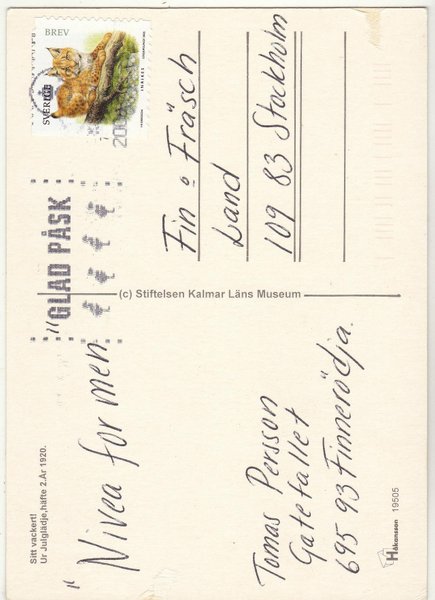 Sitt vackert!
Ur Julglädje,häfte 2.År 1920.
"Nivea for men"
Tomas Persson
Gatefallet
695 93 Finnerödja.
(c) Stiftelsen Kalmar Läns Museum
"GLAD PÅSK
BREV
SVERIGE
Fin o Fräsch
Land
109 83 Stockholm
Håkansson 19505